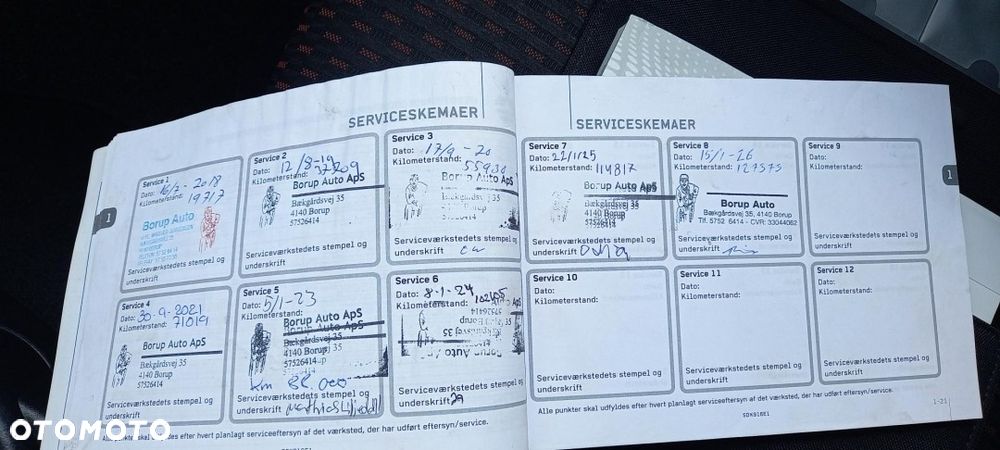 SERVICESKEMAER
Service 1
Dato: 16/2-2018
Kilometerstand: 19717
Borup Auto
Serviceværkstedets stempel og
underskrift
Service 2
Dato: 12/8-19
Kilometerstand:
Borup Auto ApS
Bækgårdsvej 35
4140 Borup
57526414
Serviceværkstedets stempel og
underskrift
Service 3
Dato: 17/9-20
Kilometerstand:
Borup Auto ApS
Serviceværkstedets stempel og
underskrift
Service 4
Dato: 30-9-2021
Kilometerstand: 71019
Borup Auto ApS
Bækgårdsvej 35
4140 Borup
57526414
Serviceværkstedets stempel og
underskrift
Service 5
Dato: 5/1-23
Kilometerstand:
Borup Auto ApS
Bækgårdsvej 35
4140 Borup
57526414
km 88.000
Serviceværkstedets stempel og
underskrift
Service 6
Dato: 8-1-24
Kilometerstand: 102405
57526414
Borup Auto ApS
Serviceværkstedets stempel og
underskrift
Alle punkter skal udfyldes efter hvert planlagt serviceeftersyn af det værksted, der har udført eftersyn/service.
SDK816E1
SERVICESKEMAER
Service 7
Dato: 22/1/25
Kilometerstand: 114817
Borup Auto ApS
Bækgårdsvej 35
4140 Borup
57526414
Serviceværkstedets stempel og
underskrift
Service 8
Dato: 15/1-26
Kilometerstand: 127575
Borup Auto
Bækgårdsvej 35, 4140 Borup
Tlf. 5752 6414 - CVR: 33044062
Serviceværkstedets stempel og
underskrift
Service 9
Dato:
Kilometerstand:
Serviceværkstedets stempel og
underskrift
Service 10
Dato:
Kilometerstand:
Serviceværkstedets stempel og
underskrift
Service 11
Dato:
Kilometerstand:
Serviceværkstedets stempel og
underskrift
Service 12
Dato:
Kilometerstand:
Serviceværkstedets stempel og
underskrift
Alle punkter skal udfyldes efter hvert planlagt serviceeftersyn af det værksted, der har udført eftersyn/service.
SDK816E1
1-21
1
1
OTOMOTO